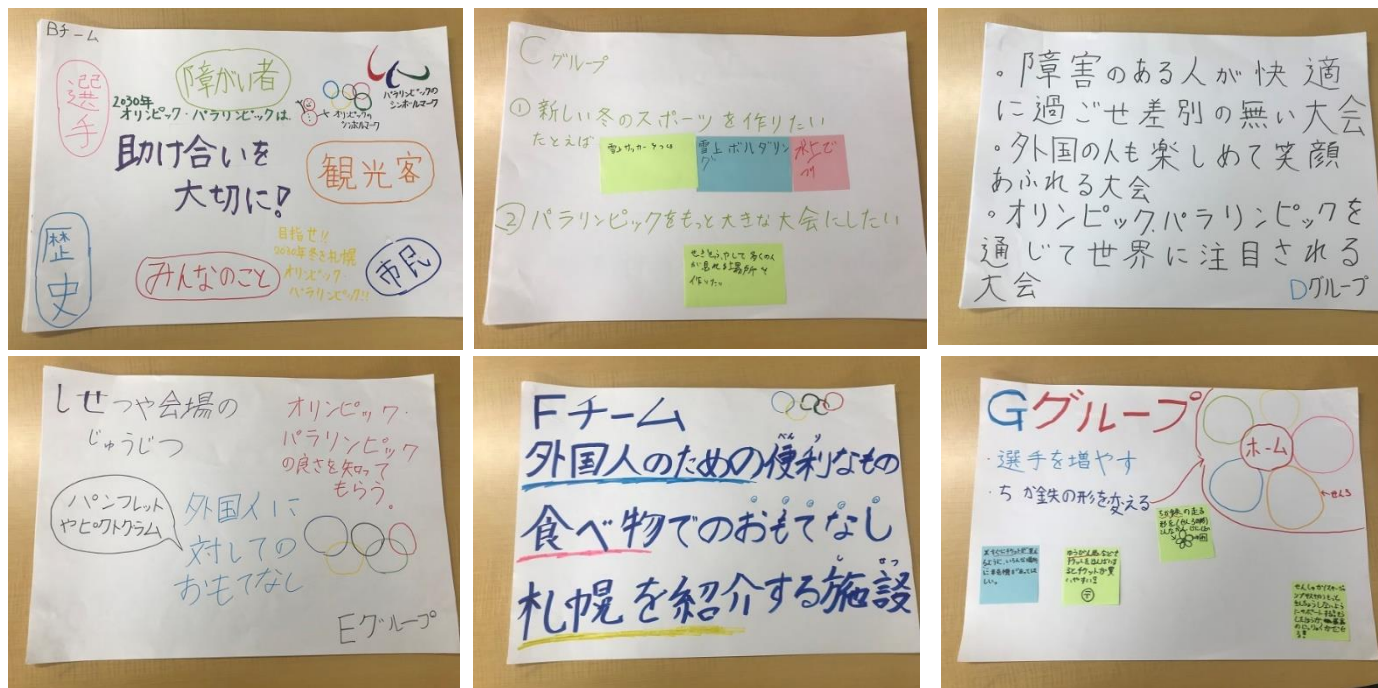 Bチーム
選手
障がい者
パラリンピックの
シンボルマーク
2030年
オリンピック・パラリンピックは、
オリンピックの
シンボルマーク
助け合いを
大切に!
観光客
歴史
みんなのこと
目指せ!!
2030年冬季札幌
オリンピック・
パラリンピック!!
市民
Cグループ
① 新しい冬のスポーツを作りたい
たとえば
雪上サッカー
雪上ボルダリン
グ
② パラリンピックをもっと大きな大会にしたい
作りたい。
・障害のある人が快適
に過ごせ差別の無い大会
・外国の人も楽しめて笑顔
あふれる大会
・オリンピック、パラリンピックを
通じて世界に注目される
大会
Dグループ
しせつや会場の
じゅうじつ
オリンピック・
パラリンピック
の良さを知って
もらう。
パンフレット
やピクトグラム
外国人に
対しての
おもてなし
Eグループ
Fチーム
外国人のための便利なもの
べんり
食べ物でのおもてなし
札幌を紹介する施設
しせつ
Gグループ
・選手を増やす
・ちか鉄の形を変える
ホーム
←せんろ